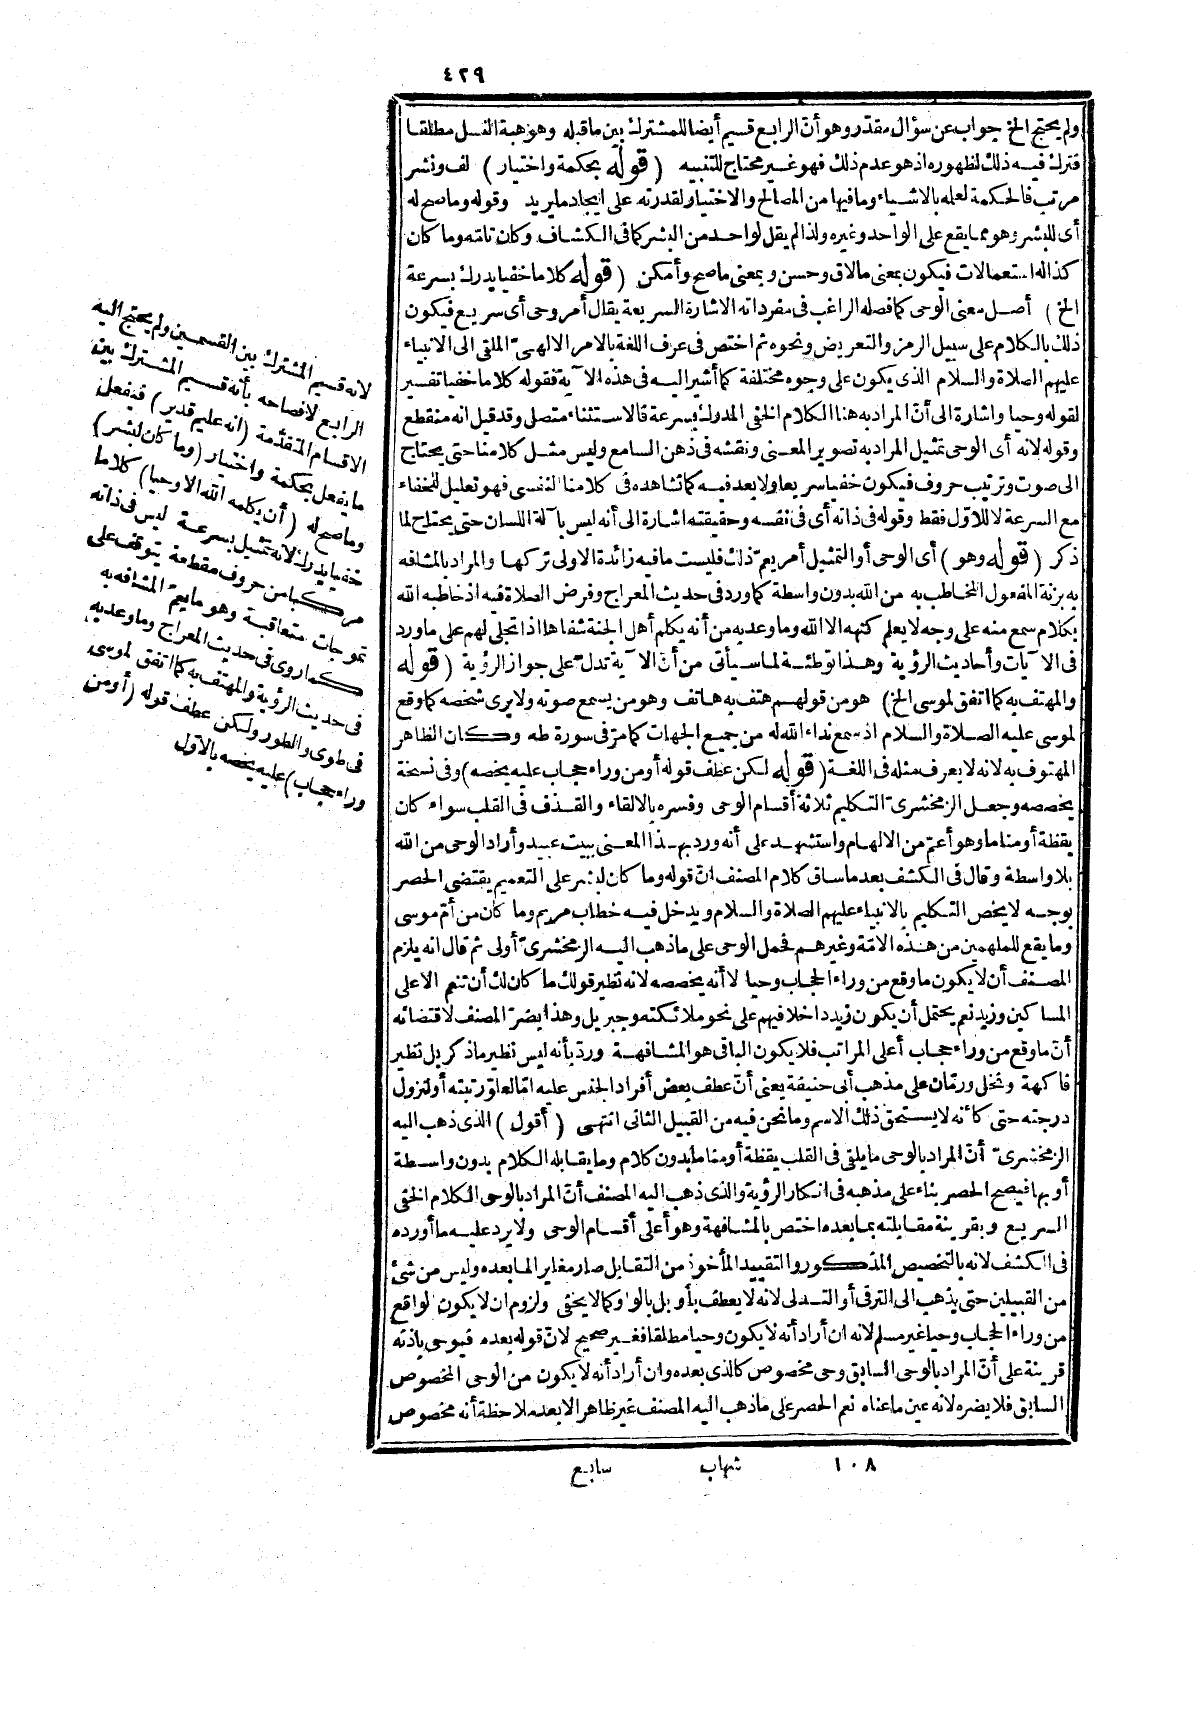 ٤٢٩
ولم يحتج الخ جواب عن سؤال مقدّر وهو أنّ الرابع قسيم أيضا للمشترك بين ما قبله وهو هبة النسل مطلقا
فترك فيه ذلك لظهوره اذ هو عدم ذلك فهو غير محتاج للتنبيه (قوله بحكمة واختيار) لف ونشر
مرتب فالحكمة لعلمه بالاشياء وما فيها من المصالح والاختيار لقدرته على ايجاد ما يريد وقوله وما صح له
أى للبشر وهو مما يقع على الواحد وغيره ولذا لم يقل لواحد من البشر كما فى الكشاف وكان تامّة وما كان
كذا له استعمالات فيكون بمعنى ما لاق وحسن وبمعنى ما صح وأمكن (قوله كلاما خفيا يدرك بسرعة
الخ) أصل معنى الوحى كما فصله الراغب فى مفرداته الاشارة السريعة يقال أمر وحى أى سريع فيكون
ذلك بالكلام على سبيل الرمز والتعريض ونحوه ثم اختص فى عرف اللغة بالامر الالهىّ الملقى الى الانبياء
عليهم الصلاة والسلام الذى يكون على وجوه مختلفة كما أشير اليه فى هذه الآية فقوله كلاما خفيا تفسير
لقوله وحيا واشارة الى أنّ المراد به هنا الكلام الخفى المدرك بسرعة فالاستثناء متصل وقد قيل انه منقطع
وقوله لانه أى الوحى تمثيل المراد به تصوير المعنى ونقشه فى ذهن السامع وليس مثل كلامنا حتى يحتاج
الى صوت وترتيب حروف فيكون خفيا سريعا ولا بعد فيه كما تشاهده فى كلامنا النفسى فهو تعليل للخفاء
مع السرعة لا للاوّل فقط وقوله فى ذاته أى فى نفسه وحقيقته اشارة الى أنه ليس بآلة اللسان حتى يحتاج لما
ذكر (قوله وهو) أى الوحى أو التمثيل أمر يعمّ ذلك فليست ما فيه زائدة الاولى تركها والمراد بالمشافه
به بزنة المفعول المخاطب به من الله بدون واسطة كما ورد فى حديث المعراج وفرض الصلاة فيه اذ خاطبه الله
بكلام سمع منه على وجه لا يعلم كنهه الا الله وما وعد به من أنه يكلم أهل الجنة شفاها اذا تجلى لهم على ما ورد
فى الآيات وأحاديث الرؤية وهذا توطئة لما سيأتى من أنّ الآية تدلّ على جواز الرؤية (قوله
والمهتف به كما اتفق لموسى الخ) هو من قولهم هتف به هاتف وهو من يسمع صوته ولا يرى شخصه كما وقع
لموسى عليه الصلاة والسلام اذ سمع نداء الله له من جميع الجهات كما مرّ فى سورة طه وكان الظاهر
المهتوف به لانه لا يعرف مثله فى اللغة (قوله لكن عطف قوله أو من وراء حجاب عليه يخصه) وفى نسخة
يخصصه وجعل الزمخشرىّ التكليم ثلاثة أقسام الوحى وفسره بالالقاء والقذف فى القلب سواء كان
يقظة أو مناما وهو أعمّ من الالهام واستشهد على أنه ورد بهذا المعنى ببيت عبيد وأراد الوحى من الله
بلا واسطة وقال فى الكشف بعد ما ساق كلام المصنف انّ قوله وما كان لبشر على التعميم يقتضى الحصر
بوجه لا يخص التكليم بالانبياء عليهم الصلاة والسلام ويدخل فيه خطاب مريم وما كان من أمّ موسى
وما يقع للملهمين من هذه الامّة وغيرهم فحمل الوحى على ما ذهب اليه الزمخشرىّ أولى ثم قال انه يلزم
المصنف أن لا يكون ما وقع من وراء الحجاب وحيا لا أنه يخصصه لانه نظير قولك ما كان لك أن تنعم الا على
المساكين وزيد نعم يحتمل أن يكون زيد داخلا فيهم على نحو ملائكته وجبريل وهذا يضرّ المصنف لاقتضائه
أنّ ما وقع من وراء حجاب أعلى المراتب فلا يكون الباقى هو المشافهة وردّ بأنه ليس نظير ما ذكر بل نظير
فاكهة ونخل ورمّان على مذهب أبى حنيفة يعنى أنّ عطف بعض أفراد الجنس عليه امّا لعلوّ رتبته أو لنزول
درجته حتى كأنه لا يستحق ذلك الاسم وما نحن فيه من القبيل الثانى انتهى (أقول) الذى ذهب اليه
الزمخشرىّ أنّ المراد بالوحى ما يلقى فى القلب يقظة أو مناما بدون كلام وما يقابله الكلام بدون واسطة
أو بها فيصح الحصر بناء على مذهبه فى انكار الرؤية والذى ذهب اليه المصنف أنّ المراد بالوحى الكلام الخفى
السريع وبقرينة مقابلته بما بعده اختص بالمشافهة وهو أعلى أقسام الوحى ولا يرد عليه ما أورده
فى الكشف لانه بالتخصيص المذكور والتقييد المأخوذ من التقابل صار مغاير الما بعده وليس من شئ
من القبيلين حتى يذهب الى الترقى أو التدلى لانه لا يعطف بأو بل بالواو كما لا يخفى ولزوم ان لا يكون الواقع
من وراء الحجاب وحيا غير مسلم لانه ان أراد أنه لا يكون وحيا مطلقا فغير صحيح لانّ قوله بعده فيوحى باذنه
قرينة على أنّ المراد بالوحى السابق وحى مخصوص كالذى بعده وان أراد أنه لا يكون من الوحى المخصوص
السابق فلا يضره لانه عين ما عناه نعم الحصر على ما ذهب اليه المصنف غير ظاهر الا بعد ملاحظة أنه مخصوص
لانه قسيم المشترك بين القسمين ولم يحتج اليه
الرابع لافصاحه بأنه قسيم المشترك بين
الاقسام المتقدّمة (انه عليم قدير) فيفعل
ما يفعل بحكمة واختيار (وما كان لبشر)
وما صح له (أن يكلمه الله الا وحيا) كلاما
خفيا يدرك لانه تمثيل بسرعة ليس فى ذاته
مركبا من حروف مقطعة يتوقف على
تموجات متعاقبة وهو ما يعمّ المشافه به
كما روى فى حديث المعراج وما وعد به
فى حديث الرؤية والمهتف به كما اتفق لموسى
فى طوى والطور ولكن عطف قوله (أو من
وراء حجاب) عليه يخصه بالاوّل
١٠٨ شهاب سابع